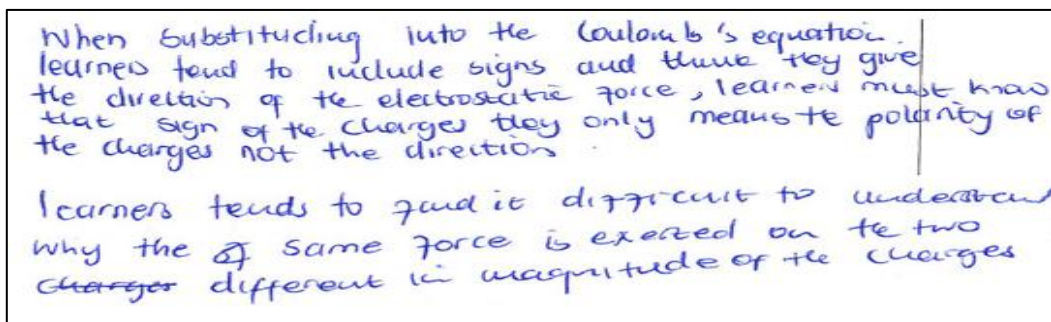 When substituding into the Coulomb's equation.
learners tend to include signs and think they give
the direction of the electrostatic force, learners must know
that sign of the charges they only means the polarity of
the charges not the direction.
learners tends to find it difficult to understand
why the same force is exerted on the two
charges different in magnitude of the charges